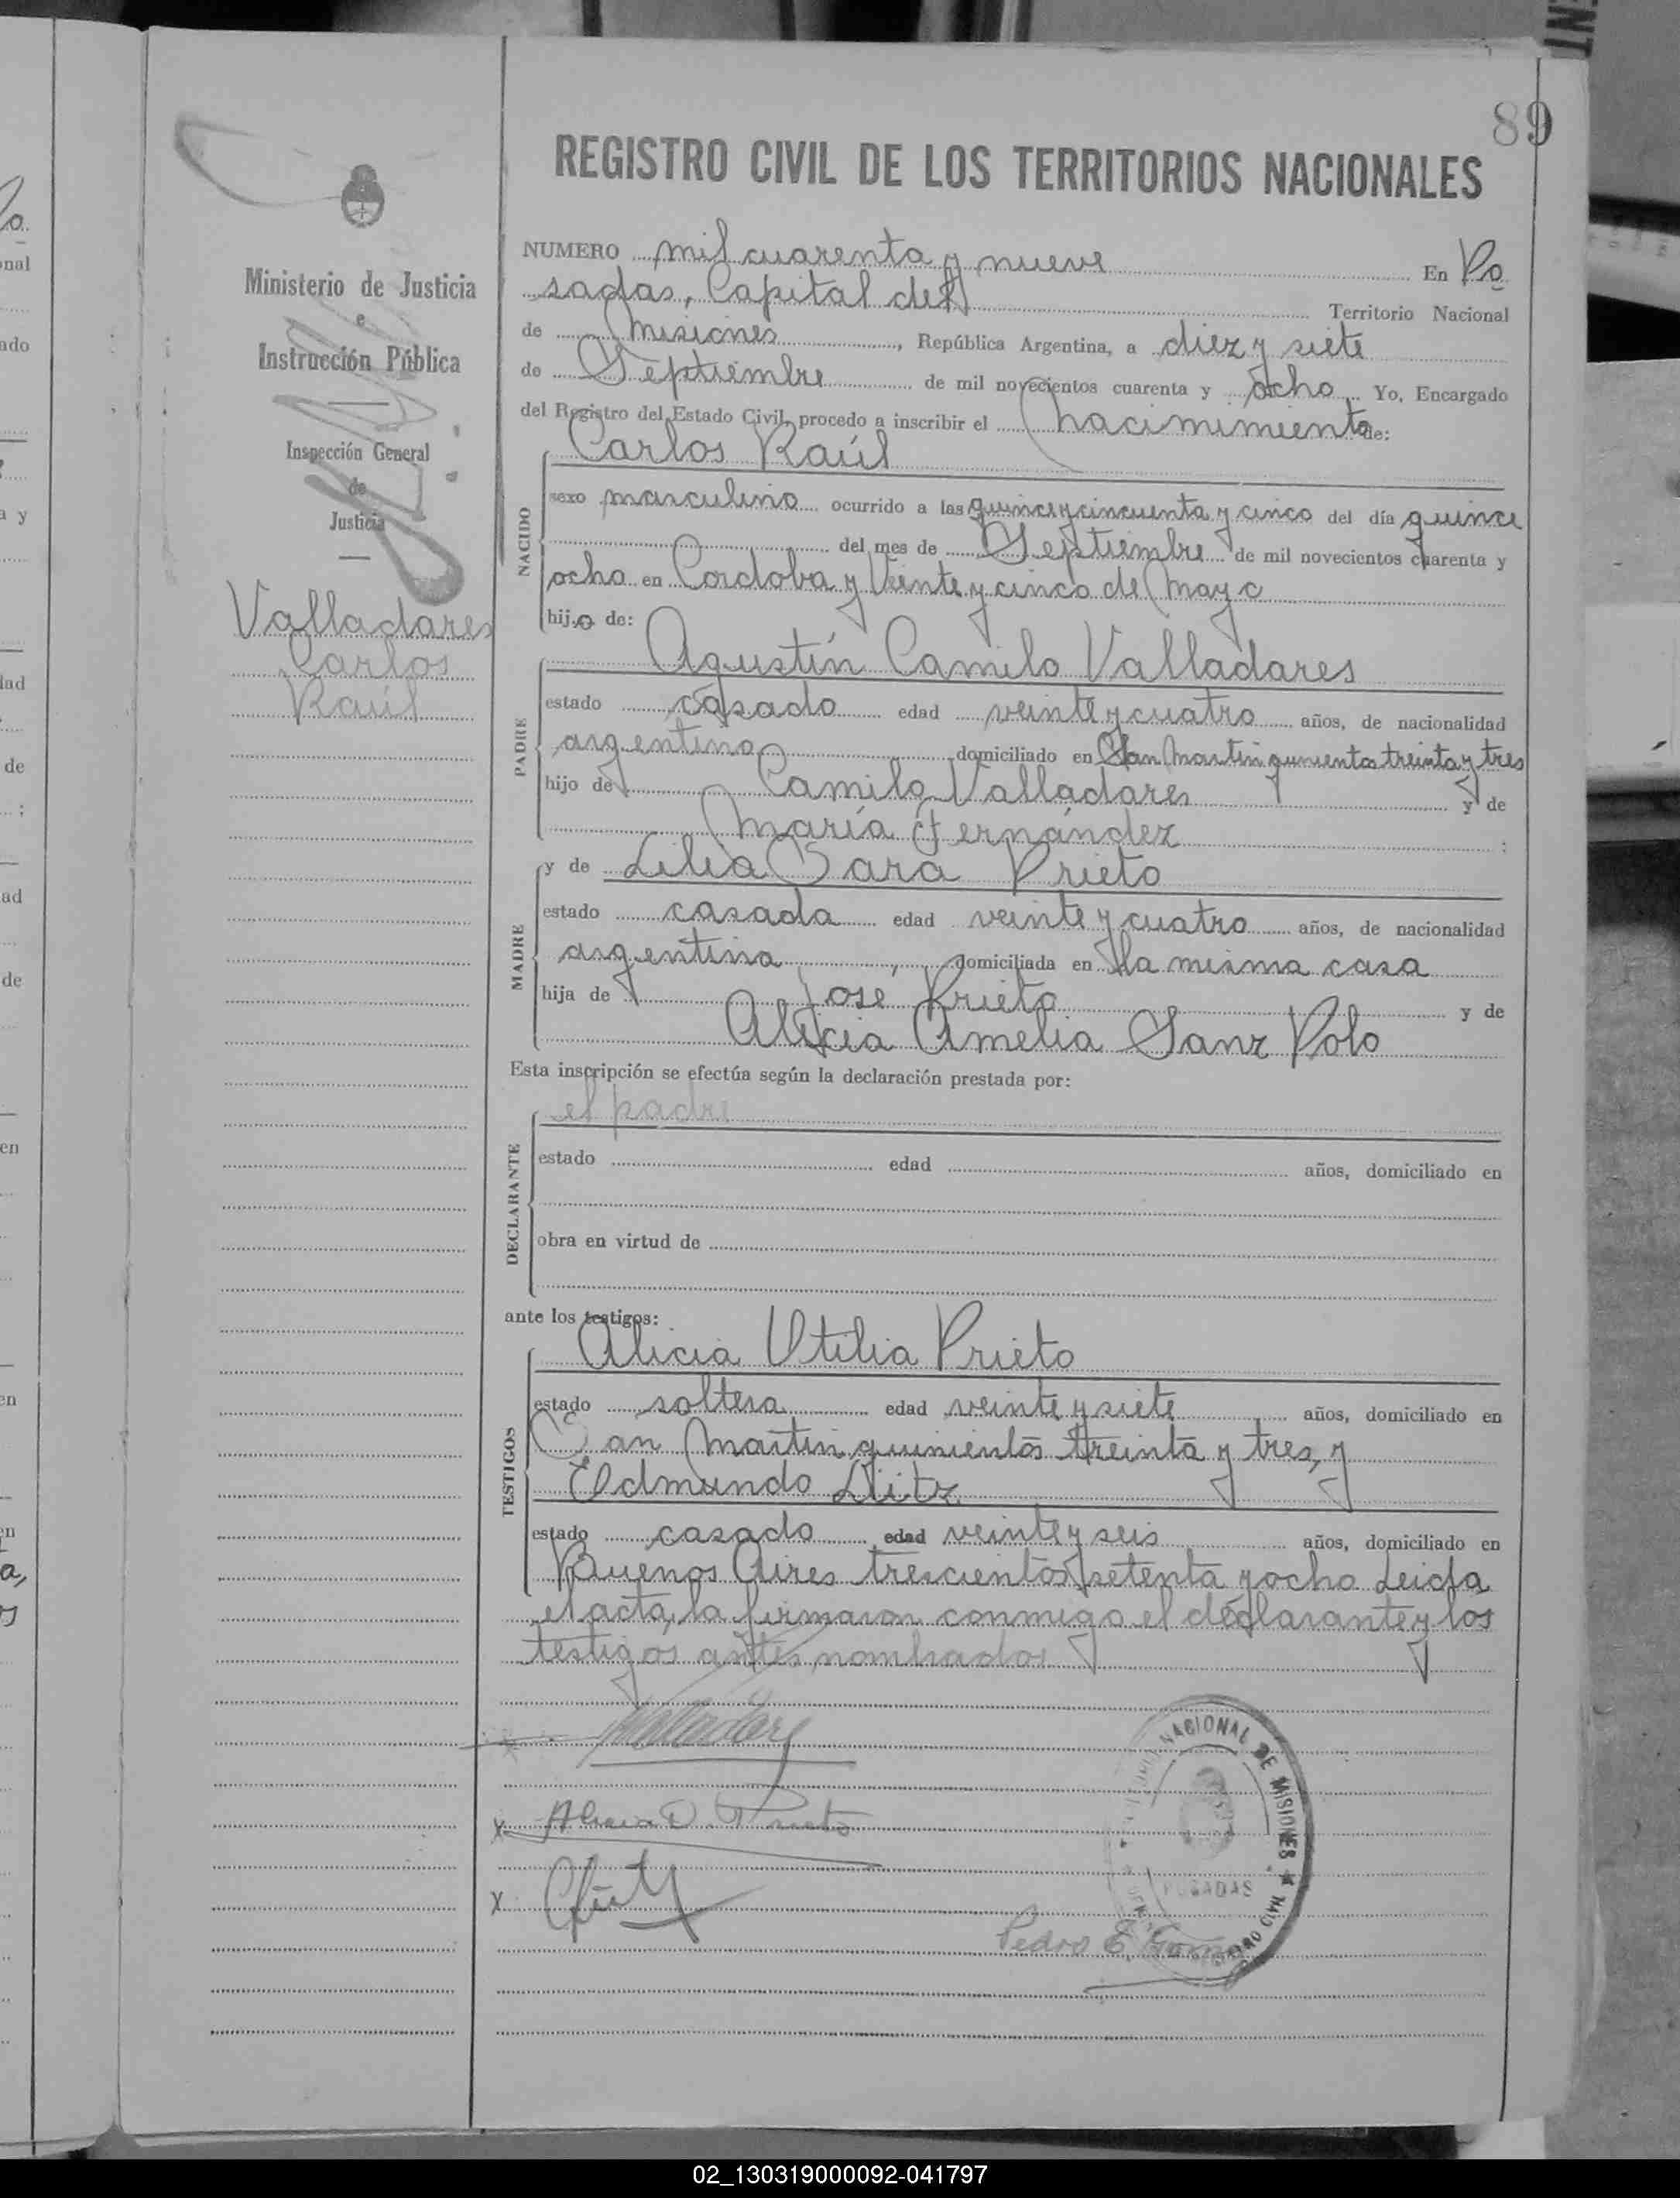 89
REGISTRO CIVIL DE LOS TERRITORIOS NACIONALES
Ministerio de Justicia
e
Instrucción Pública
Inspección General
de
Justicia
Valladares
Carlos
Raúl
NUMERO mil cuarenta y nueve En Po
sadas, Capital del Territorio Nacional
de Misiones, República Argentina, a diez y siete
de Septiembre de mil novecientos cuarenta y ocho Yo, Encargado
del Registro del Estado Civil, procedo a inscribir el nacimimiento de:
NACIDO
Carlos Raúl
sexo masculino ocurrido a las quince y cincuenta y cinco del día quince
del mes de Septiembre de mil novecientos cuarenta y
ocho en Cordoba y Veinte y cinco de Mayo
hijo de:
PADRE
Agustín Camilo Valladares
estado casado edad veinte y cuatro años, de nacionalidad
argentino domiciliado en San Martin quinientos treinta y tres
hijo de Camilo Valladares y de
María Fernández :
MADRE
y de Lilia Sara Prieto
estado casada edad veinte y cuatro años, de nacionalidad
argentina, domiciliada en la misma casa
hija de José Prieto y de
Alicia Amelia Sanz Polo
Esta inscripción se efectúa según la declaración prestada por:
DECLARANTE
el padre
estado edad años, domiciliado en
obra en virtud de
ante los testigos:
TESTIGOS
Alicia Utilia Prieto
estado soltera edad veinte y siete años, domiciliado en
San Martin quinientos treinta y tres, y
Edmundo
estado casado edad veinte y seis años, domiciliado en
Buenos Aires trescientos setenta y ocho Leida
el acta, la firmaron conmigo el declarante y los
testigos antes nombrados
Valladares
x Alicia U. Prieto
x
NACIONAL DE MISIONES ★ REGISTRO CIVIL
POSADAS
Pedro E. Gomez
02_130319000092-041797